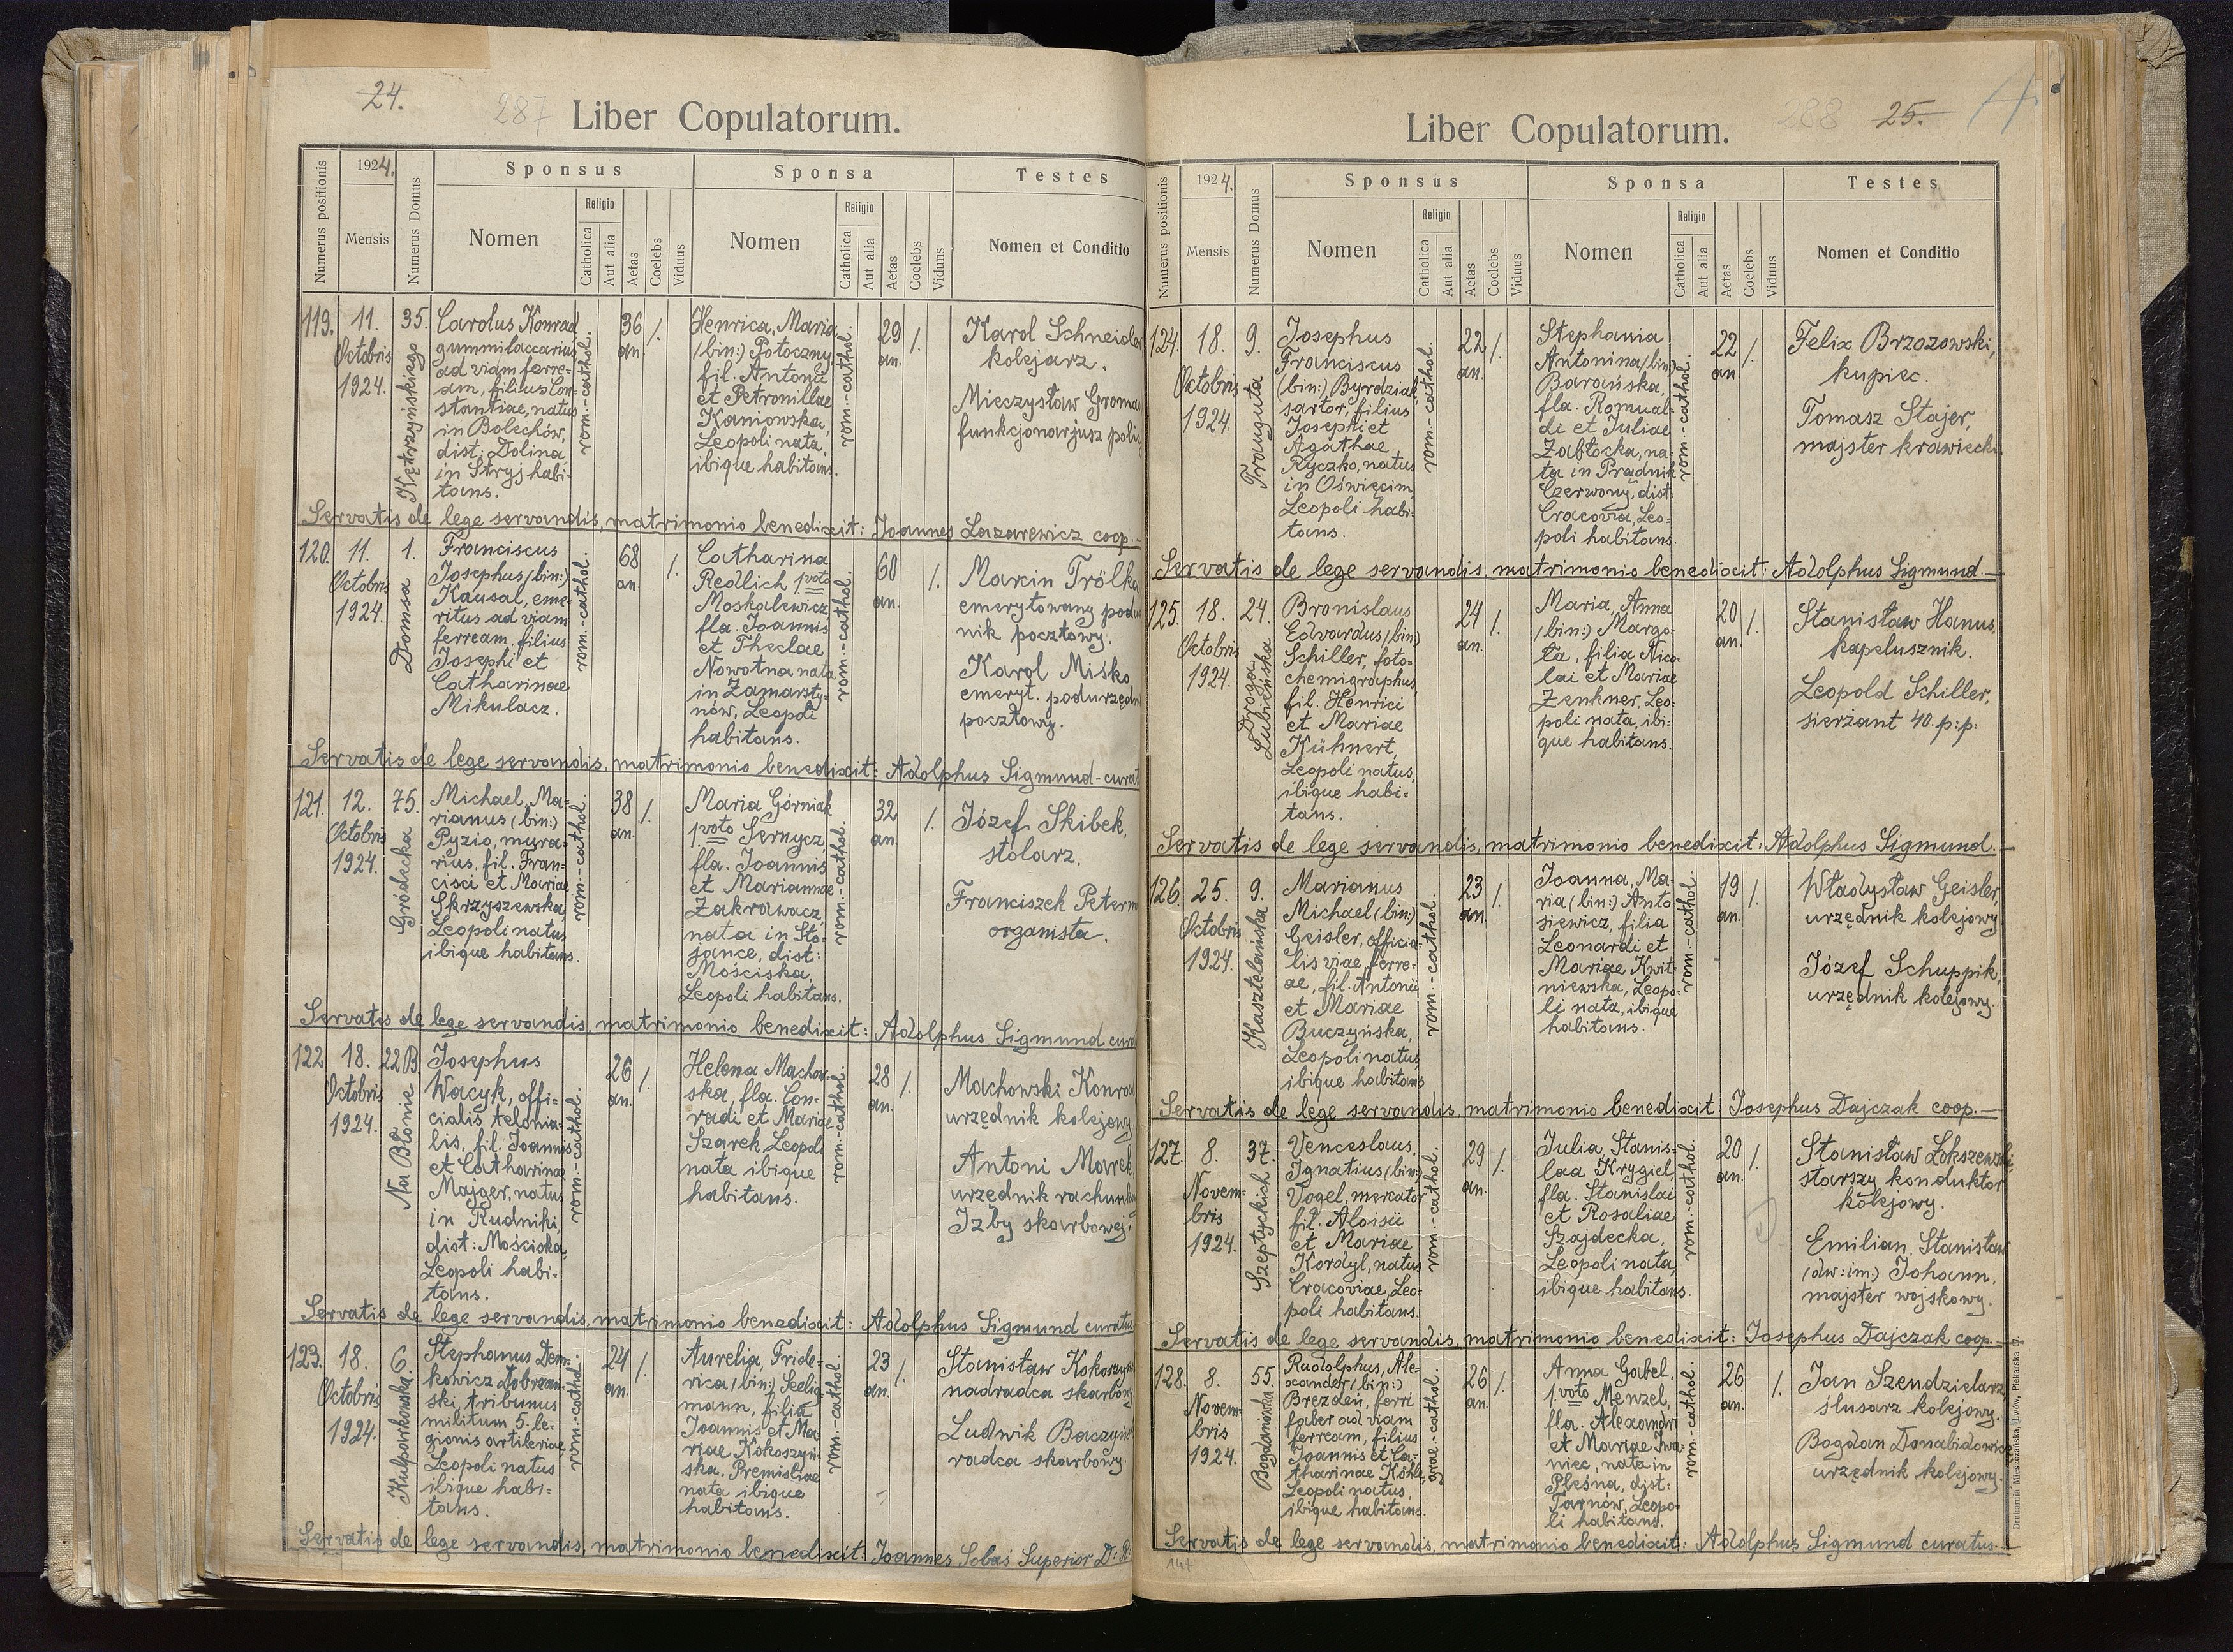 24.
287
Liber Copulatorum.
Numerus positionis
1924.
Mensis
Numerus Domus
Sponsus
Nomen
Religio
Catholica
Aut alia
Aetas
Coelebs
Viduus
Sponsa
Nomen
Religio
Catholica
Aut alia
Aetas
Coelebs
Viduus
Testes
Nomen et Conditio
119.
11.
Octobris
1924.
35.
Kętrzyńskiego
Carolus Konrad
gummilaccarius
ad viam ferre-
am, filius Con-
stantiae, natus
in Bolechów,
dist: Dolina
in Stryj habi-
tans.
rom.-cathol.
36
an.
/.
Henrica, Maria
(bin:) Potoczny
fil. Antonii
et Petronillae
Kaniowska,
Leopoli nata,
ibique habitans.
rom.-cathol.
29
an.
/.
Karol Schneider
kolejarz.
Mieczysław
funkcjonarjusz
Servatis de lege servandis, matrimonio benedixit: Joannes Lazarewicz coop.-
120.
11.
Octobris
1924.
1.
Domsa
Franciscus
Josephus (bin:)
Kausal, eme-
ritus ad viam
ferream, filius
Josephi et
Catharinae
Mikulacz.
rom.-cathol.
68
an.
/.
Catharina
Redlich 1voto
Moskalewicz
fla. Joannis
et Theclae
Nowotna nata
in Zamarsty-
nów, Leopoli
habitans.
rom.-cathol.
60
an.
/.
Marcin Trölka
emerytowany
nik pocztowy.
Karol Miśko
emeryt.
pocztowy.
Servatis de lege servandis, matrimonio benedixit: Adolphus Sigmund-
121.
12.
Octobris
1924.
75.
Gródecka
Michael, Ma-
rianus (bin:)
Pyzio, mura-
rius, fil. Fran-
cisci et Mariae
Skrzyszewska,
Leopoli natus
ibique habitans.
rom.-cathol.
38
an.
/.
Maria Górniak
1voto Sernycz,
fla. Joannis
et Mariannae
Zakrawacz,
nata in Sto-
jance, dist:
Mościska,
Leopoli habitans.
rom.-cathol.
32
an.
/.
Józef Skibek,
stolarz.
Franciszek
organista.
Servatis de lege servandis, matrimonio benedixit: Adolphus Sigmund
122
18.
Octobris
1924.
22B
Na Błonie
Josephus
Wacyk, offi-
cialis telonia-
lis, fil. Joannis
et Catharinae
Majger, natus
in Rudniki,
dist: Mościska,
Leopoli habi-
tans.
rom.-cathol.
26
an.
/.
Helena Machow-
ska, fla. Con-
radi et Mariae
Szarek, Leopoli
nata ibique
habitans.
rom.-cathol.
28
an.
/.
Machowski
urzędnik kolejowy.
Antoni Marek
urzędnik
Izby skarbowej.
Servatis de lege servandis, matrimonio benedixit: Adolphus Sigmund curatus
123.
18.
Octobris
1924.
6.
Kulparkowska
Stephanus Dem-
kowicz Dobrzań-
ski, tribunus
militum 5. le-
gionis artileriae
Leopoli natus
ibique habi-
tans.
rom.-cathol.
24
an.
/.
Aurelia, Fride-
rica (bin:) Seelig-
mann, filia
Joannis et Ma-
riae Kokoszyń-
ska, Premisliae
nata ibique
habitans.
rom.-cathol.
23
an.
/.
Stanisław
nadradca
Ludwik
radca skarbowy.
Servatis de lege servandis, matrimonio benedixit: Joannes Sobaś Superior D:
288
25.
Liber Copulatorum.
Numerus positionis
1924.
Mensis
Numerus Domus
Sponsus
Nomen
Religio
Catholica
Aut alia
Aetas
Coelebs
Viduus
Sponsa
Nomen
Religio
Catholica
Aut alia
Aetas
Coelebs
Viduus
Testes
Nomen et Conditio
124.
18.
Octobris
1924.
9.
Trauguta
Josephus
Franciscus
(bin:) Byrdziak,
sartor, filius
Josephi et
Agathae
Ryczko, natus
in Oświęcim,
Leopoli habi-
tans.
rom.-cathol.
22
an.
/.
Stephania
Antonina (bin:)
Barańska,
fla. Romual-
di et Juliae
Zabłocka, na-
ta in Prądnik
Czerwony, dist
Cracovia, Leo-
poli habitans.
rom.-cathol.
22
an.
/.
Felix Brzozowski,
kupiec.
Tomasz Stajer,
majster krawiecki.
Servatis de lege servandis, matrimonio benedixit: Adolphus Sigmund.-
125.
18.
Octobris
1924.
24.
Droga
Lubieńska
Bronislaus
Edvardus (bin:)
Schiller, foto-
chemigraphus,
fil. Henrici
et Mariae
Kühnert,
Leopoli natus,
ibique habi-
tans.
24
an.
/.
Maria, Anna
(bin:) Margo-
ta, filia Nico-
lai et Mariae
Zenkner, Leo-
poli nata, ibi-
que habitans.
20
an.
/.
Stanisław Hanus,
kapelusznik.
Leopold Schiller,
sierżant 40. p:p:
Servatis de lege servandis, matrimonio benedixit: Adolphus Sigmund.-
126.
25.
Octobris
1924.
9.
Kasztelańska
Marianus
Michael (bin:)
Geisler, officia-
lis viae ferre-
ae, fil. Antonii
et Mariae
Buczyńska,
Leopoli natus,
ibique habitans
rom.-cathol.
23
an.
/.
Joanna, Ma-
ria (bin:) Anto-
siewicz, filia
Leonardi et
Mariae Kwit-
niewska, Leopo-
li nata, ibique
habitans.
rom.-cathol.
19
an.
/.
Władysław Geisler,
urzędnik kolejowy.
Józef Schuppik,
urzędnik kolejowy.
Servatis de lege servandis, matrimonio benedixit: Josephus Dajczak coop.-
127.
8.
Novem-
bris
1924.
37.
Szeptyckich
Venceslaus,
Ignatius (bin:)
Vogel, mercator
fil. Aloisii
et Mariae
Kordyl, natus
Cracoviae, Leo-
poli habitans.
rom.-cathol.
29
an.
/.
Julia, Stanis-
laa Krygiel,
fla. Stanislai
et Rosaliae
Szajdecka,
Leopoli nata,
ibique habitans.
rom.-cathol.
20
an.
/.
Stanisław Łokszewski,
starszy konduktor
kolejowy.
Emilian, Stanisław
(dw: im:) Johann,
majster wojskowy.
Servatis de lege servandis, matrimonio benedixit: Josephus Dajczak coop.-
128.
8.
Novem-
bris
1924.
55.
Bogdanówka
Rudolphus, Ale-
xander (bin:)
Brezdeń, ferri
faber ad viam
ferream, filius
Joannis et Ca-
tharinae Köhle,
Leopoli natus,
ibique habitans.
grae.-cathol.
26
an.
/.
Anna Gabel,
1.voto Menzel,
fla. Alexandri
et Mariae Iwa-
niec, nata in
Pleśna, dist:
Tarnów, Leopo-
li habitans.
rom.-cathol
26
an.
/.
Jan Szendzielarz,
ślusarz kolejowy.
Bogdan Donabidowicz
urzędnik kolejowy.
Servatis de lege servandis, matrimonio benedixit: Adolphus Sigmund curatus.-
147
Drukarnia Mieszczańska, Lwów, Piekarska